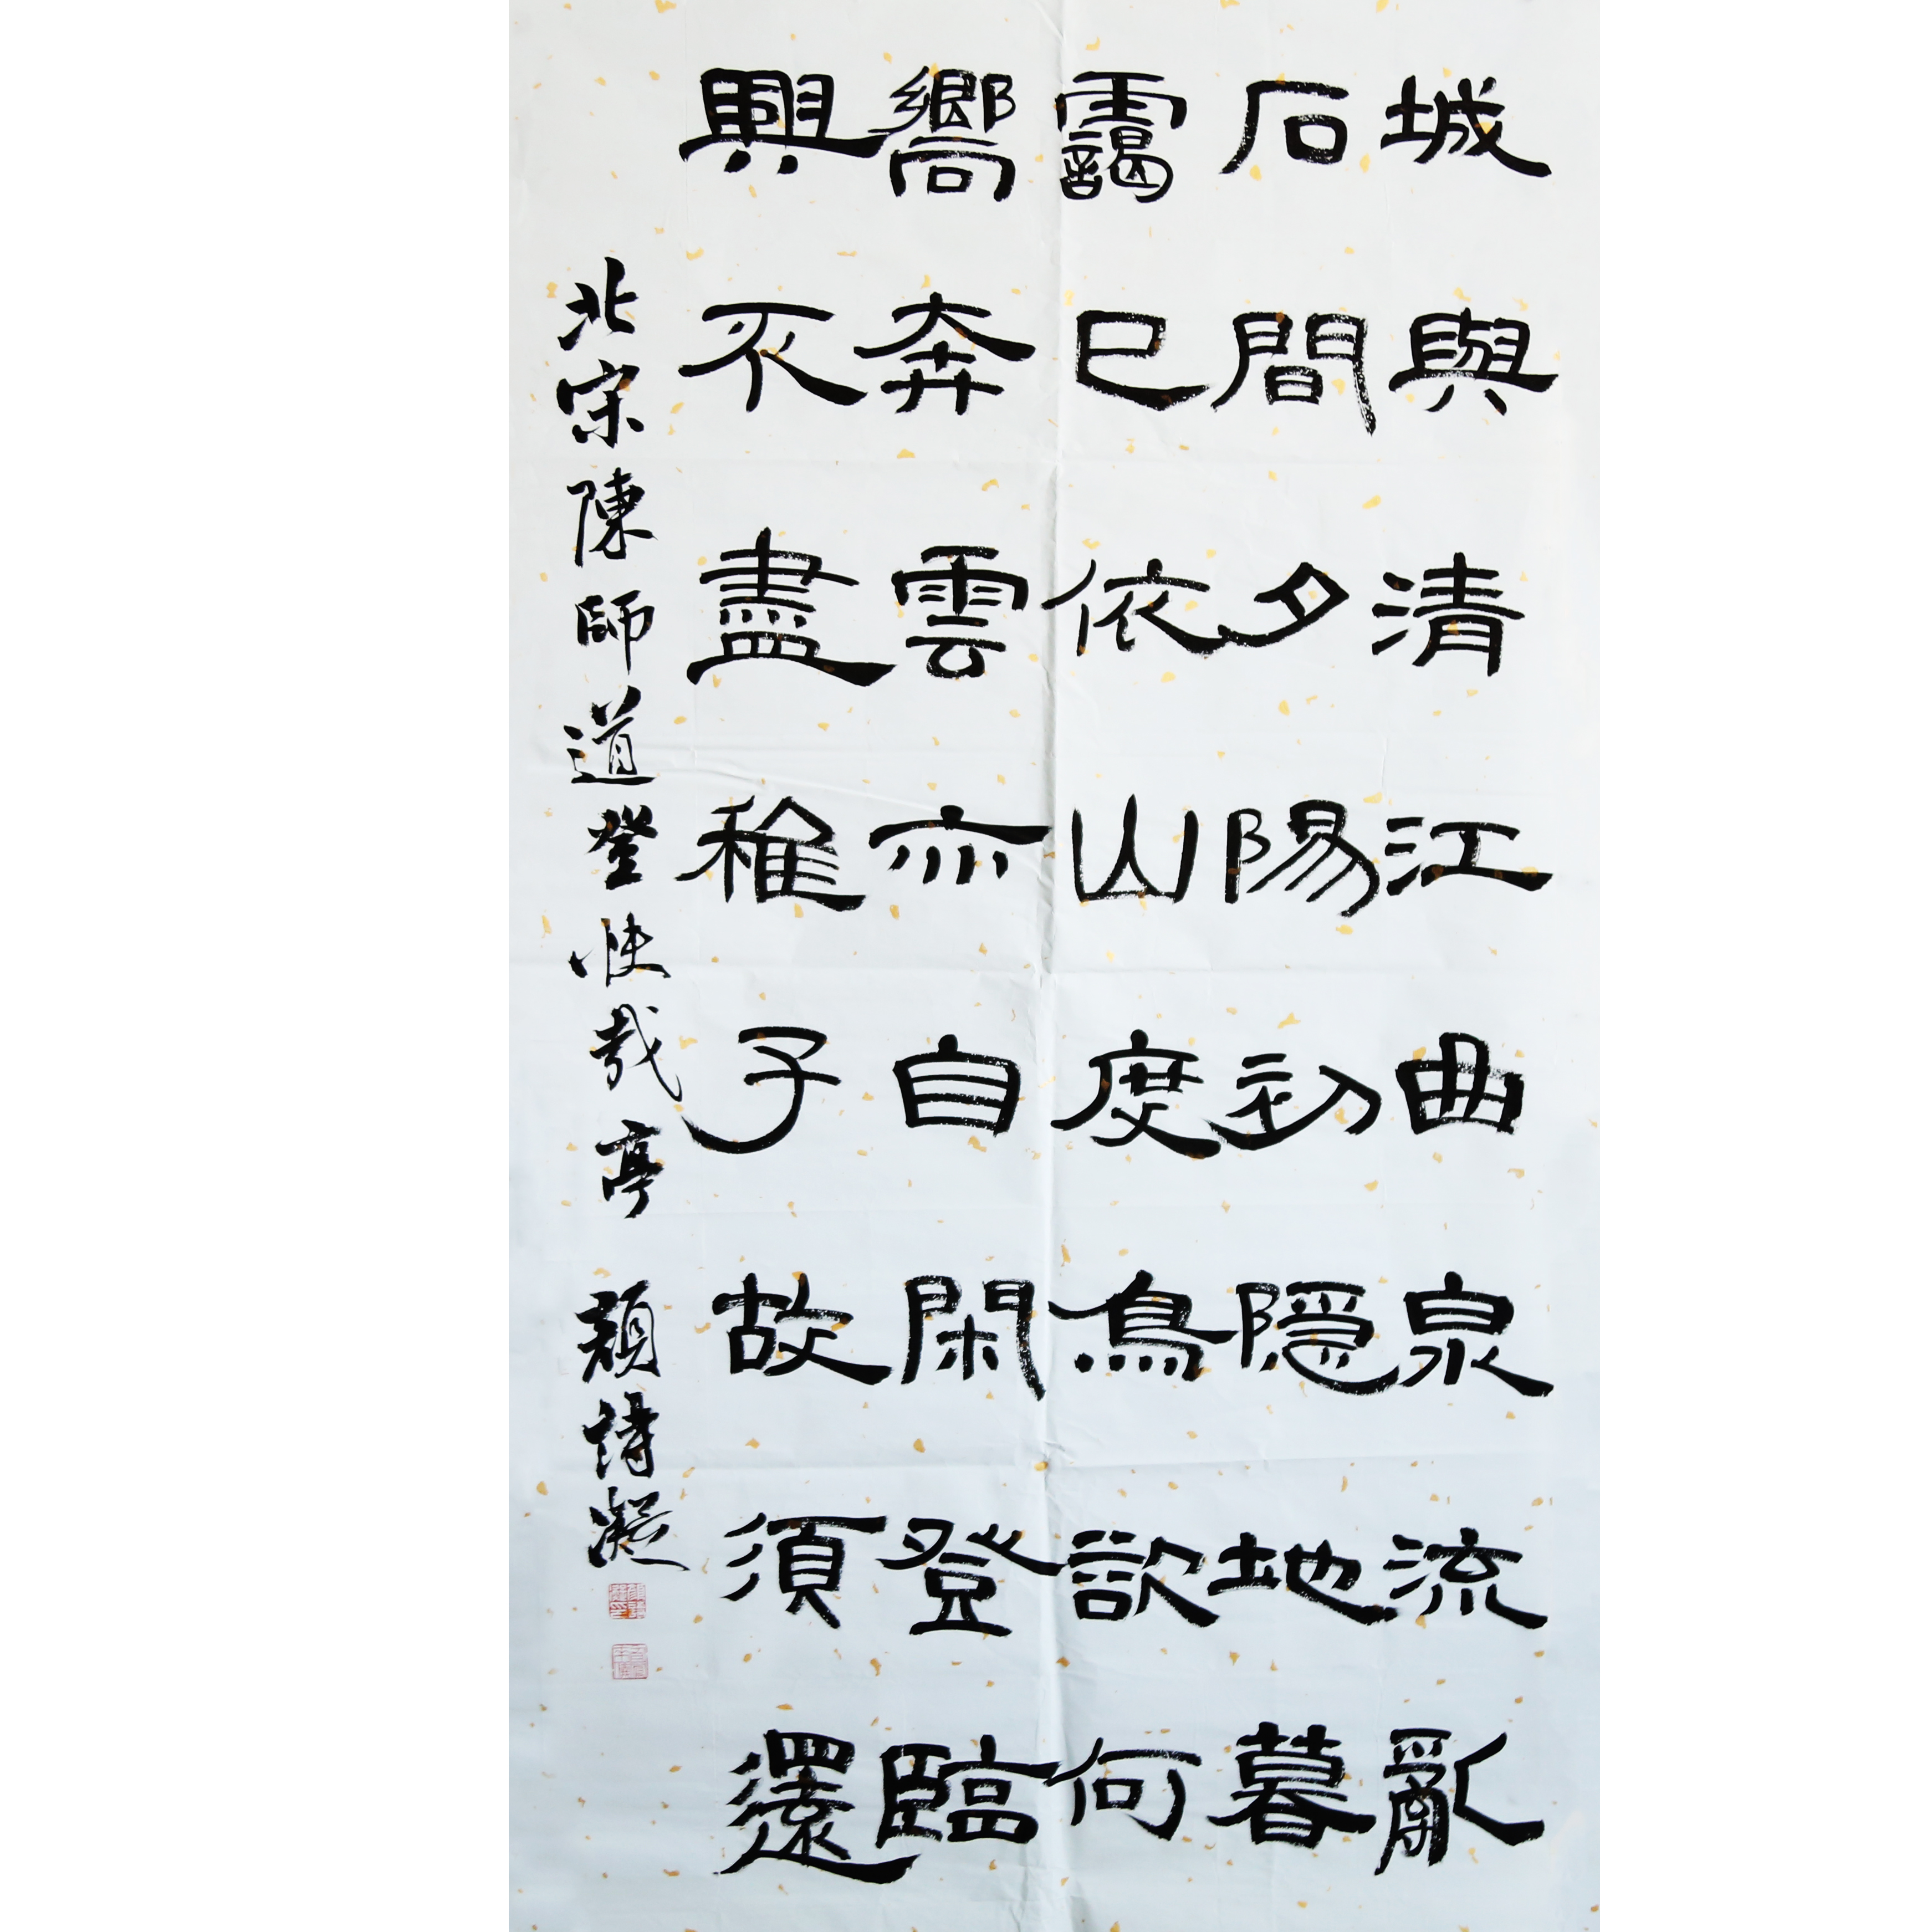 城與清江曲泉流亂
石間夕陽初隱地暮
靄已依山度鳥欲何
嚮奔雲亦自閑登臨
興不盡稚子故須還
北宋陳師道登快哉亭 顏詩凝